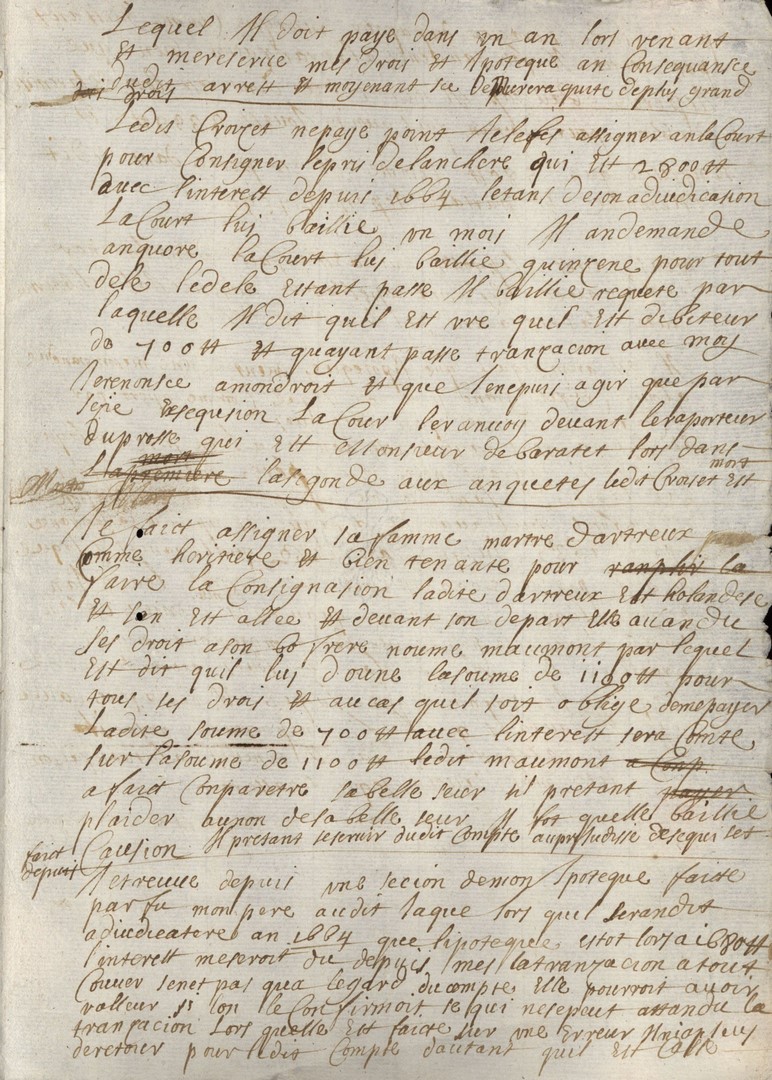 Lequel Il doit paye dans un an lors venant
Et mereserve mes drois Et Ipoteque an Consequansce
dudit arrest Et moyenant se demurera quite deplus grand
drois
Ledit Croizet nepaye point Ie lefes assigner anla Court
pour Consigner lepris delanchere qui Est 2800tt
avec linterest depuis 1664 letans desonadiudicasion
La Court luj baillie un mois Il andemande
anquore la Court luj baillie quinzene pour tout
dele ledele Estant passe Il baillie requete par
laquelle Il dit quil Est vre quil Est debiteur
de 700tt Et quayant passe tranzacion avec moy
Ierenonsce amondroit Et que Ienepuis agir que par
sesie Exsequsion La Cour leranvoy devant leraporteur
duprosse qui Est Monsieur debaratet lors dans
mort
Lapremiere lasegonde aux anquetes ledit Croiset Est
mort
Ie faict assigner sa famme martre dartreux
Comme heritiere Et bien tenante pour ranplir la
faire la Consignasion ladite dartreux Est holandese
Et sen Est allee Et devant son depart Elle avandu
ses droit a son bofrere noume maumont par lequel
Est dit quil luj doune lasoume de 1100tt pour
tous ses drois Et aucas quil soit oblige demepayer
Ladite soume de 700tt avec linterest sera Comte
sur lasoume de 1100tt ledit maumont a Conp
a faict Conparetre sabelle seur sil pretant payer
plaider aunon desabelle seur Il fot quelle baillie
Causion Il pretant seservir dudit Compte aupreiudisse desequi set
faict
depuis
Ietreuve depuis une secion demon Ipoteque faicte
par fu mon pere audit laque lors quil serandit
adiudicatere an 1664 que lipoteque estot lors a 1680tt
linterest meseroit du depuis mes latranzacion atout
Couver senet pas qua legard ducompte Elle pourroit avoir
valleur si lon le Confirmoit se qui nesepeut attandu la
tranzacion Lors quelle Est faicte sur une Erreur
deretour pour ledit Compte dautant quil Est Casse